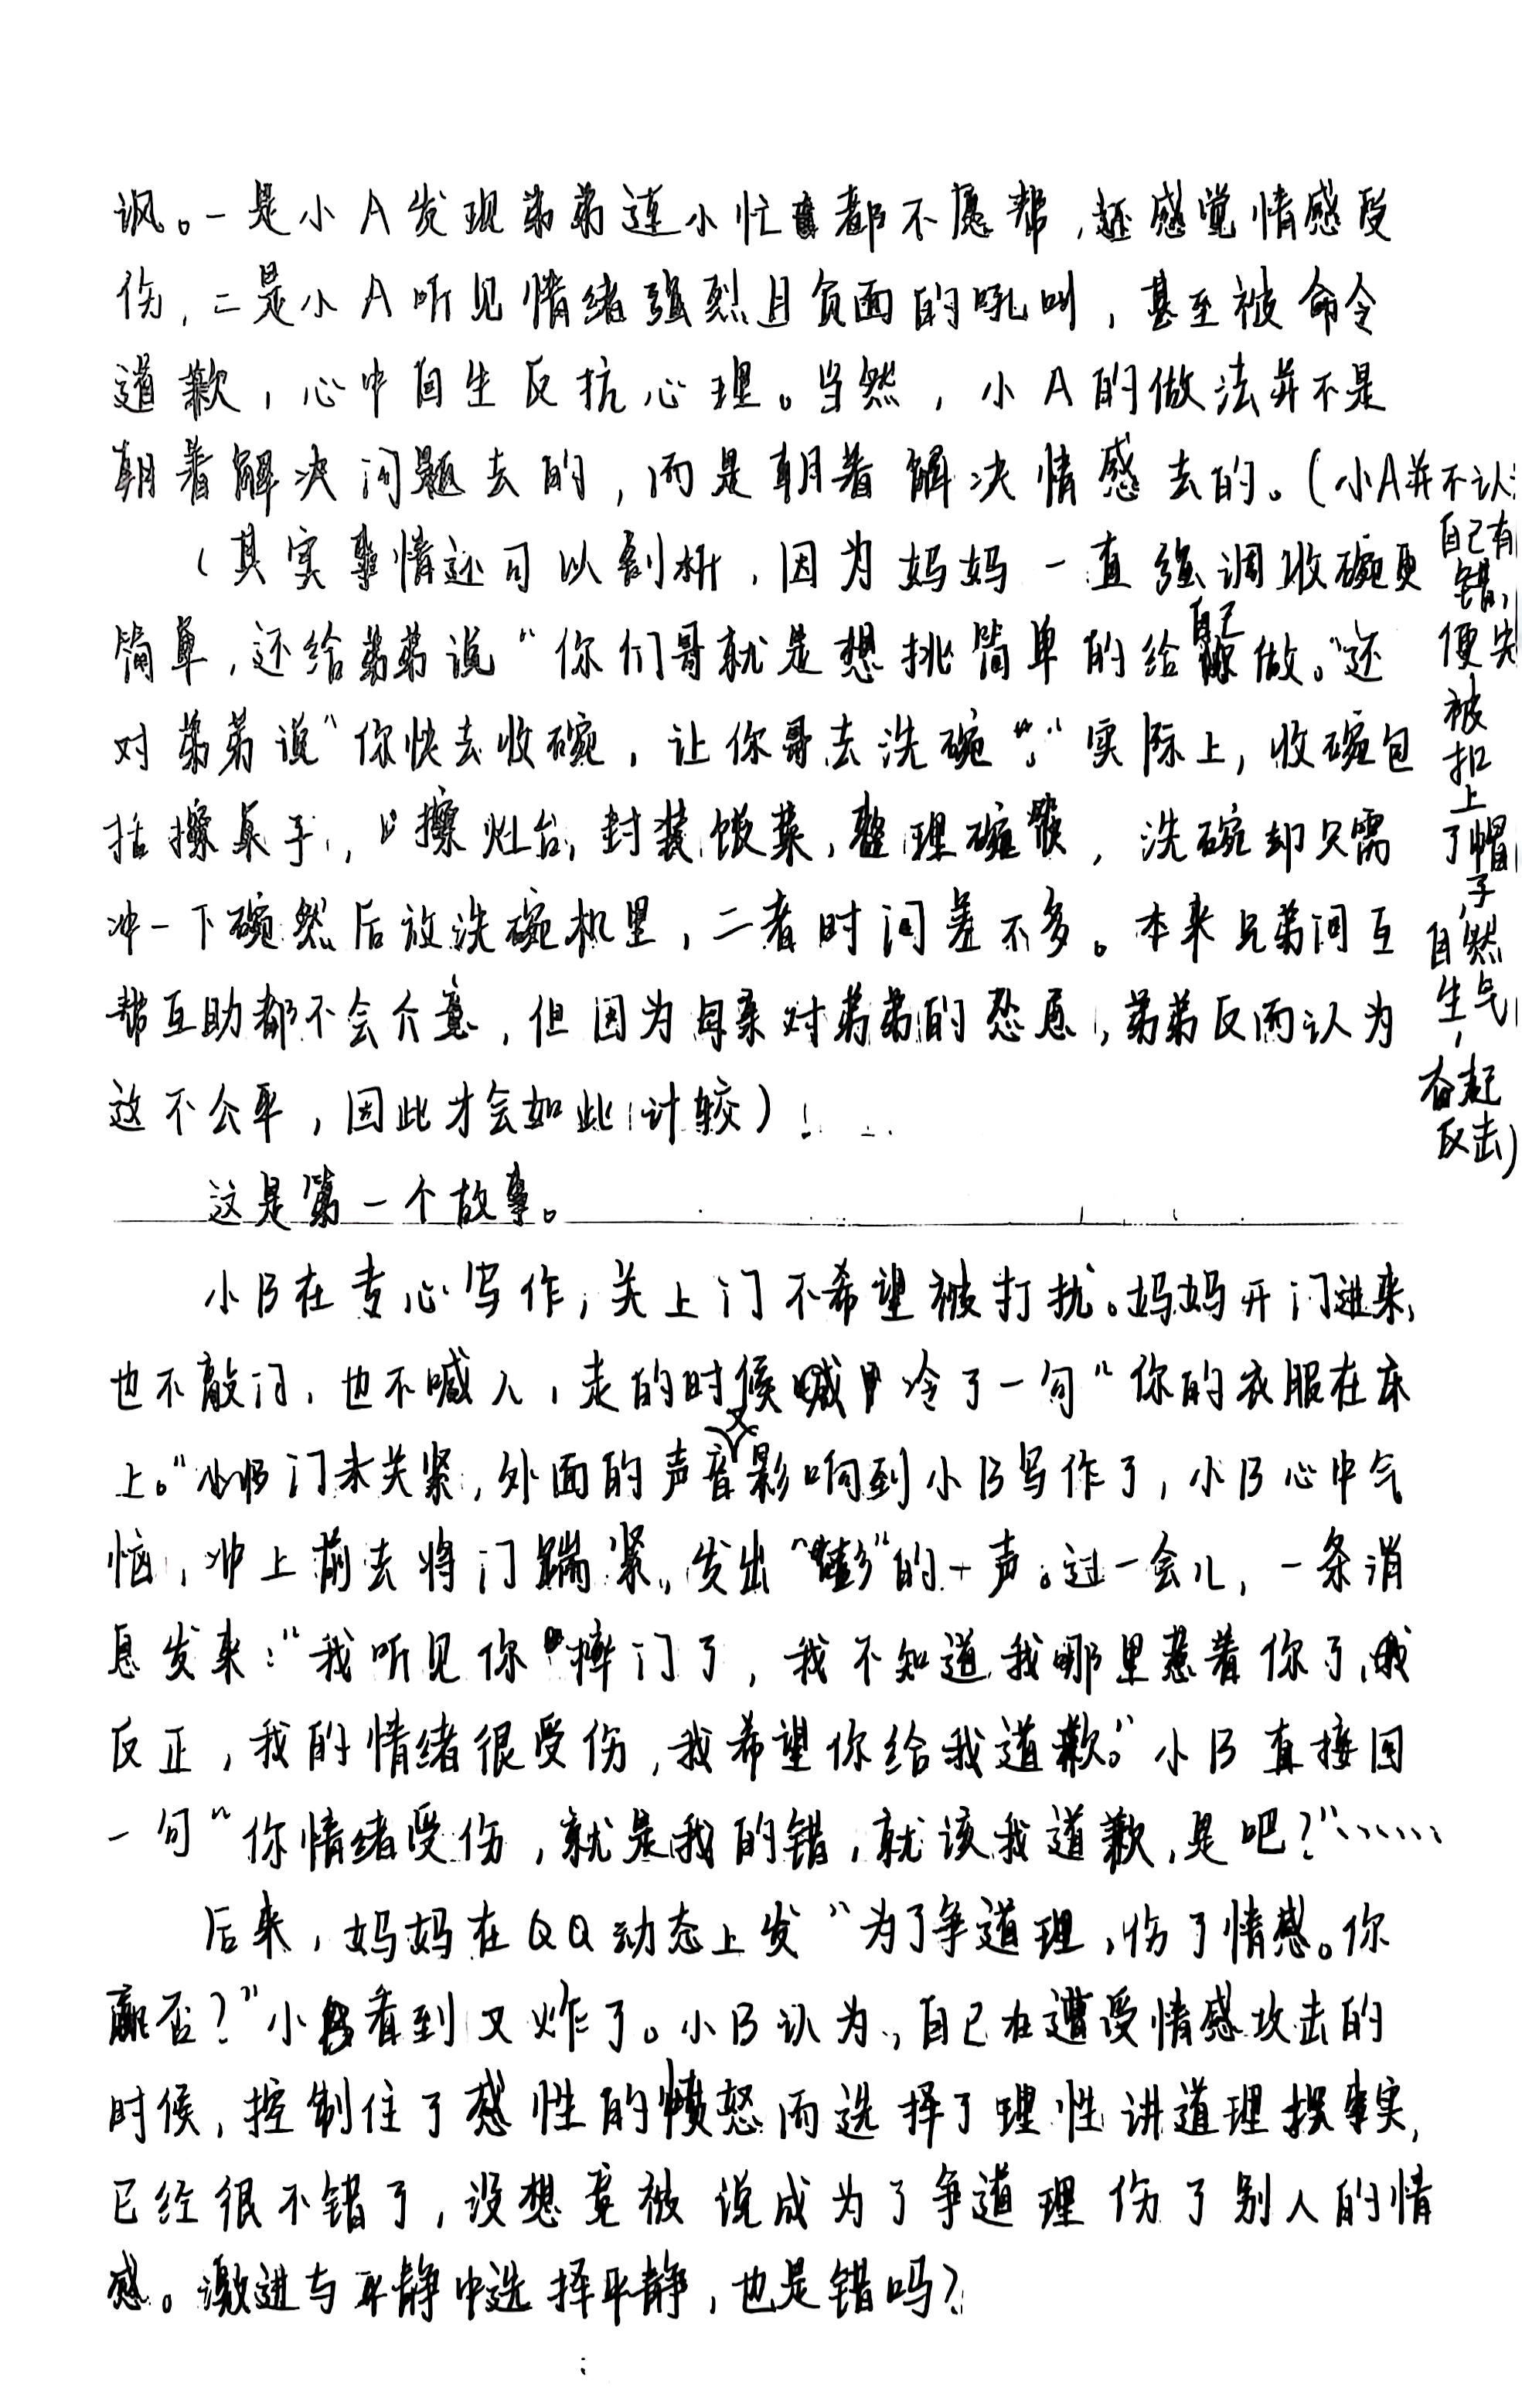 讽。一是小A发现弟弟连小忙都不愿帮,还感觉情感受
伤,二是小A听见情绪强烈且负面的吼叫,甚至被命令
道歉,心中自生反抗心理。当然,小A的做法并不是
朝着解决问题去的,而是朝着解决情感去的。(小A并不认
自己有
错,
便先
被
扣
上
了帽
子,
自然
生气
,
奋起
反击)
(其实事情还可以剖析,因为妈妈一直强调收碗更
简单,还给弟弟说“你们哥就是想挑简单的给自己做。”还
对弟弟说“你快去收碗,让你哥去洗碗。”实际上,收碗包
括擦桌子,擦灶台,封装饭菜,整理碗筷,洗碗却只需
冲一下碗然后放洗碗机里,二者时间差不多。本来兄弟间互
帮互助都不会介意,但因为母亲对弟弟的怂恿,弟弟反而认为
这不公平,因此才会如此计较)
这是第一个故事。
小B在专心写作,关上门不希望被打扰。妈妈开门进来,
也不敲门,也不喊人,走的时候冷了一句“你的衣服在床
上。”门未关紧,外面的声音又影响到小B写作了,小B心中气
恼,冲上前去将门踹紧,发出“嘭”的一声。过一会儿,一条消
息发来:“我听见你摔门了,我不知道我哪里惹着你了,
反正,我的情绪很受伤,我希望你给我道歉。”小B直接回
一句“你情绪受伤,就是我的错,就该我道歉,是吧?”……
后来,妈妈在QQ动态上发“为了争道理,伤了情感。你
赢否?”小B看到又炸了。小B认为,自己在遭受情感攻击的
时候,控制住了感性的愤怒而选择了理性讲道理摆事实,
已经很不错了,没想竟被说成为了争道理伤了别人的情
感。激进与平静中选择平静,也是错吗?